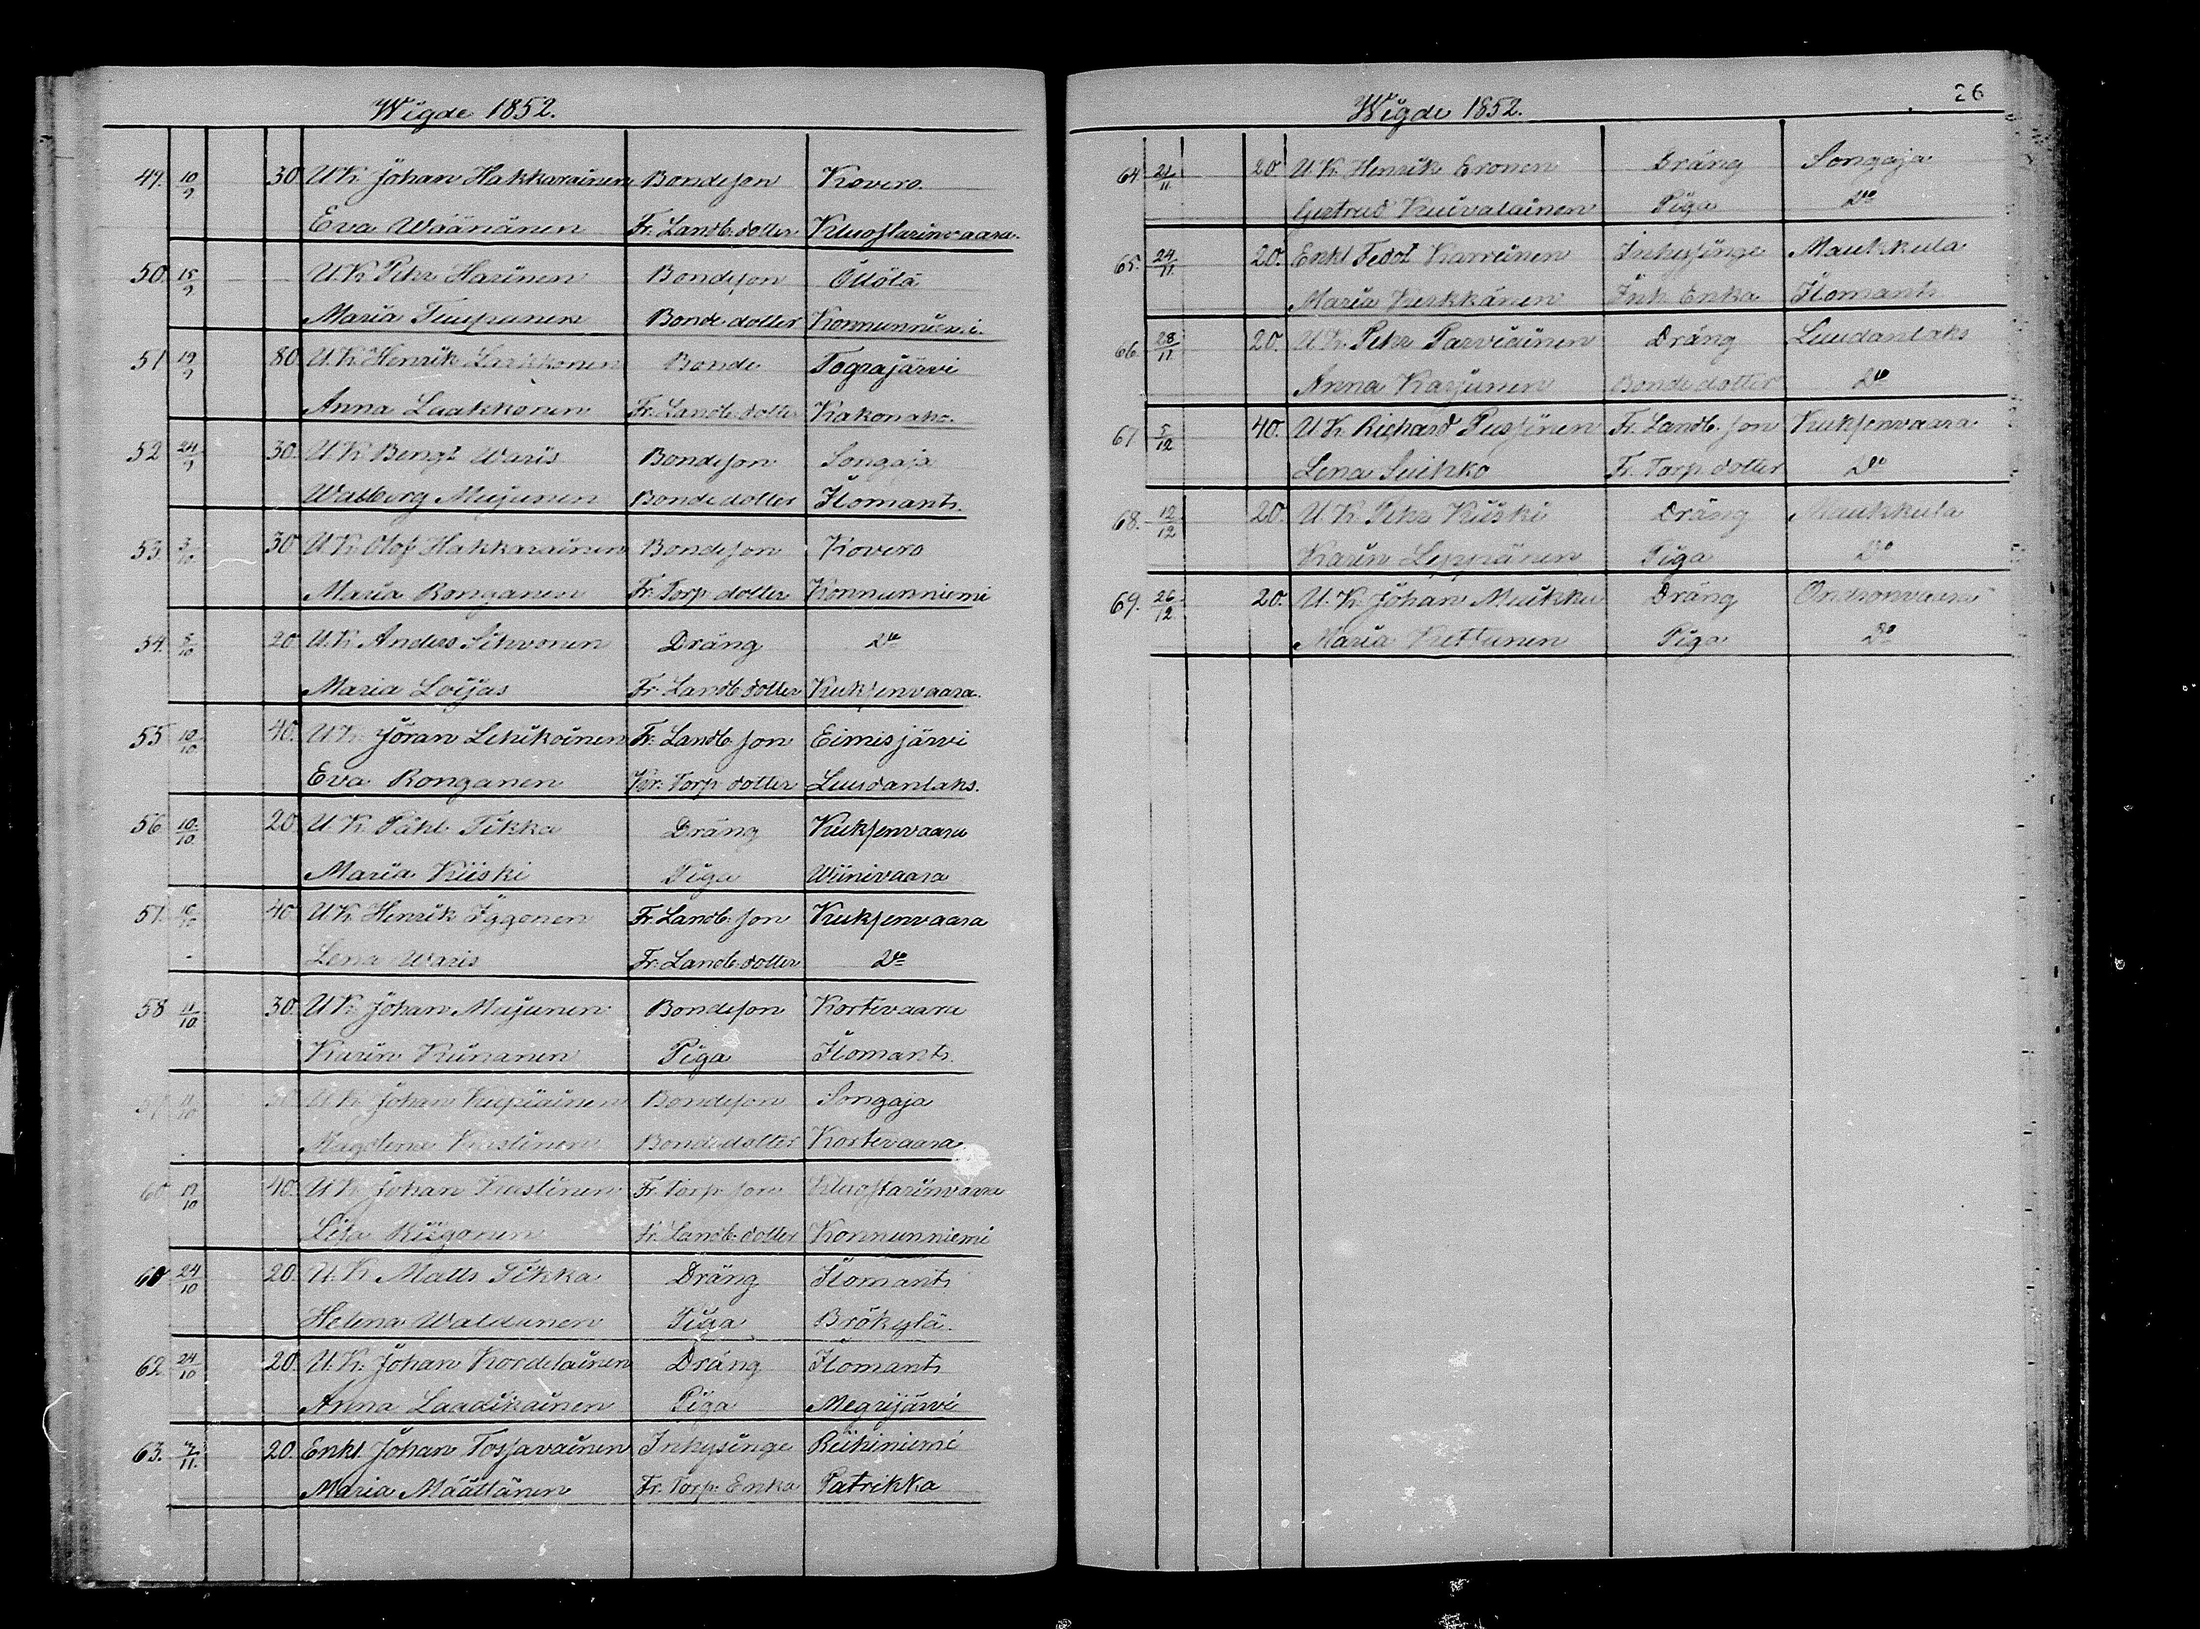 Wigde 1852.
49. 10/9 30. U.K. Johan Hakkarainen Bondeson Kovero
Eva Wäänänen Fr. Landb. dotter Kluostarinvaara.
50. 15/9 U.K. Petr Harinen Bondeson Öllölä
Maria Timpunen Bonde dotter Konnunniemi
51 19/9 80. U.K. Henrik Larkkonen Bonde Tograjärvi
Anna Laakkonen Fr. Landb. dotter Kakonaho.
52 24/9 30. U.K. Bengt Waris Bondeson Songaja
Walborg Mujunen Bonde dotter Ilomants.
53. 3/10. 30. U.K. Olof Hakkarainen Bondeson Kovero
Maria Ronganen Fr. Torp. dotter Konnunniemi
54. 5/10 20 U.K. Anders Sihvonen Dräng Do
Maria Loijas Fr. Landb. dotter Kuksenvaara.
55 10/10 40. U.K. Jöran Lehikoinen Fr. Landb. son Eimisjärvi
Eva Ronganen Kr. Torp. dotter Luudanlaks.
56 10/10. 20 U.K. Påhl Sikka Dräng Kuksenvaara
Maria Kiiski Piga Wiinivaara
57. 10/10 40. U.K. Henrik Iggonen Fr. Landb. son Kuksenvaara
Lena Waris Fr. Landb. dotter Do
58 11/10. 30. U.K. Johan Mujunen Bondeson Kortevaara
Karin Kuinanen Piga Ilomants.
11/10 U.K. Johan Kupiainen Bondeson Songaja
Magdlena Kustinen Bonde dotter Kortevaara
60 17/10 40. U.K. Johan Kustinen Fr. Torp. son Kluostarinvaara
Lisa Riigonen Fr. Landb. dotter Konnunniemi
60 24/10 20. U.K. Matts Sikka Dräng Ilomants
Helena Waldunen Piga Brökylä.
62. 24/10 20. U.K. Johan Kordelainen Dräng Ilomants
Anna Laadikainen Piga Megrijärvi
63. 7/11. 20. Enkl. Johan Tossavainen Inhysinge Riihiniemi
Maria Määttänen Fr. Torp. Enka Patrikka
Wigde 1852. 26
64 21/11. 20 U.K. Henrik Eronen Dräng Songaja
Gertrud Kuivalainen Piga Do
65. 24/11. 20. Enkl Fedot Karvinen Inhysinge Maukkula
Maria Kurkkänen Inh. Enka Ilomants
66. 28/11. 20. U.K. Petr Parviainen Dräng Luudanlaks
Anna Karjunen Bonde dotter Do
67 5/12 40. U.K. Richard Pussinen Fr. Landb. son Kuksenvaara
Lena Suihko Fr. Torp. dotter Do
68. 12/12 20. U.K. Petr Kiiski Dräng Maukkula
Karin Leppänen Piga Do
69. 26/12. 20. U.K. Johan Muikku Dräng Ondronvaara
Maria Kettunen Piga Do